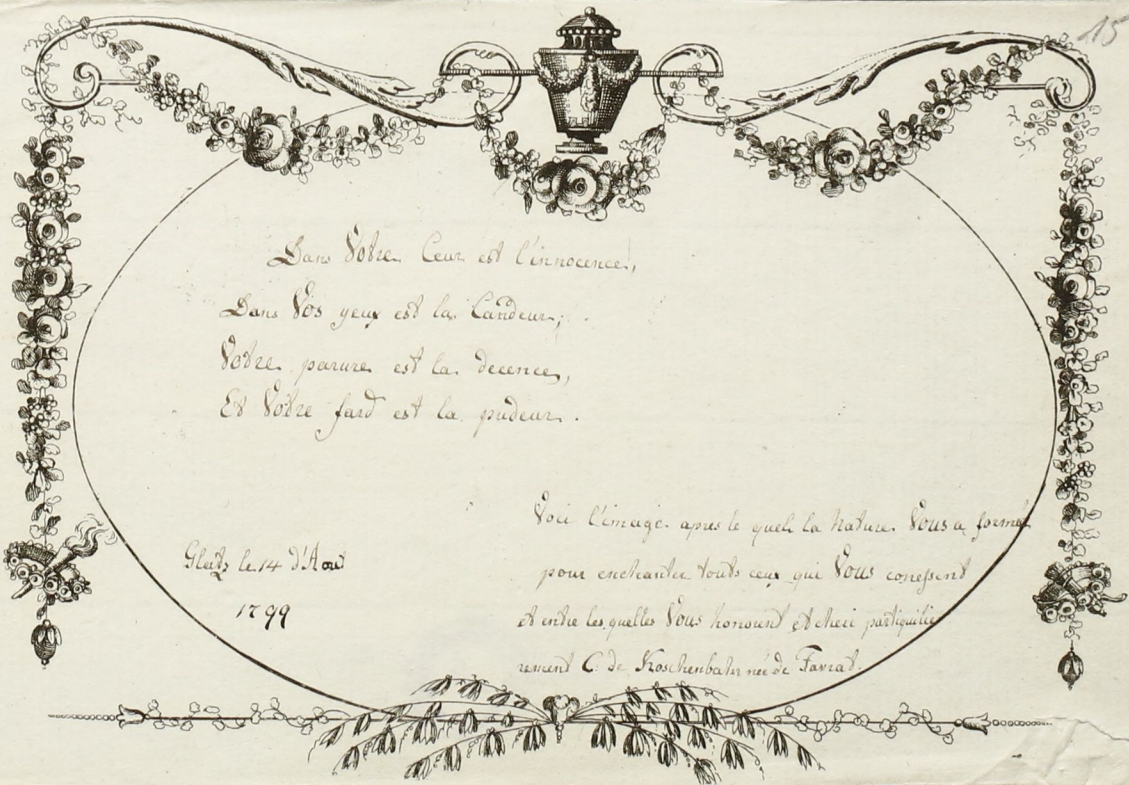 15
Dans Votre Ceur est l'innocence,
Dans Vos yeux est la Candeur;
Votre parure est la decence,
Et Votre fard est la pudeur.
Voici l'image apres le quel la Nature Vous a formé
pour enchanter touts ceux qui Vous conessent
et entre les quelles Vous honount et cheri partiquilie
rement C. de Koschenbahr née de Favrat.
Gleitz le 14 d'Aout
1799